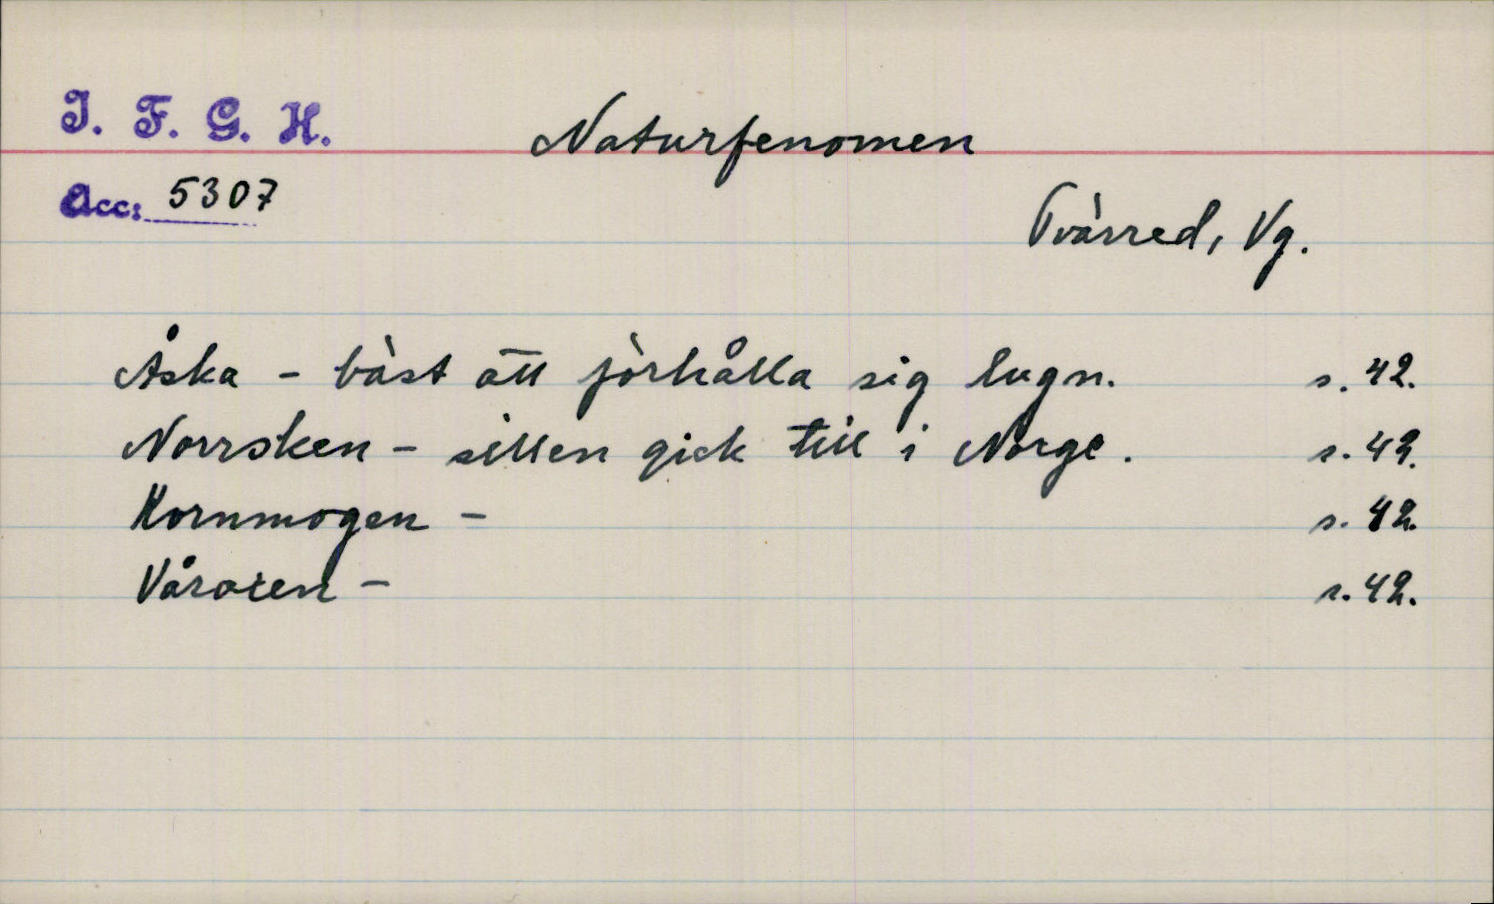 I. F. G. H.
Naturfenomen
Acc: 5307
Tvärred, Vg.
Åska - bäst att förhålla sig lugn. s. 42.
Norrsken - sillen gick till i Norge. s. 42.
Kornmogen - s. 42.
Våroxen - s. 42.